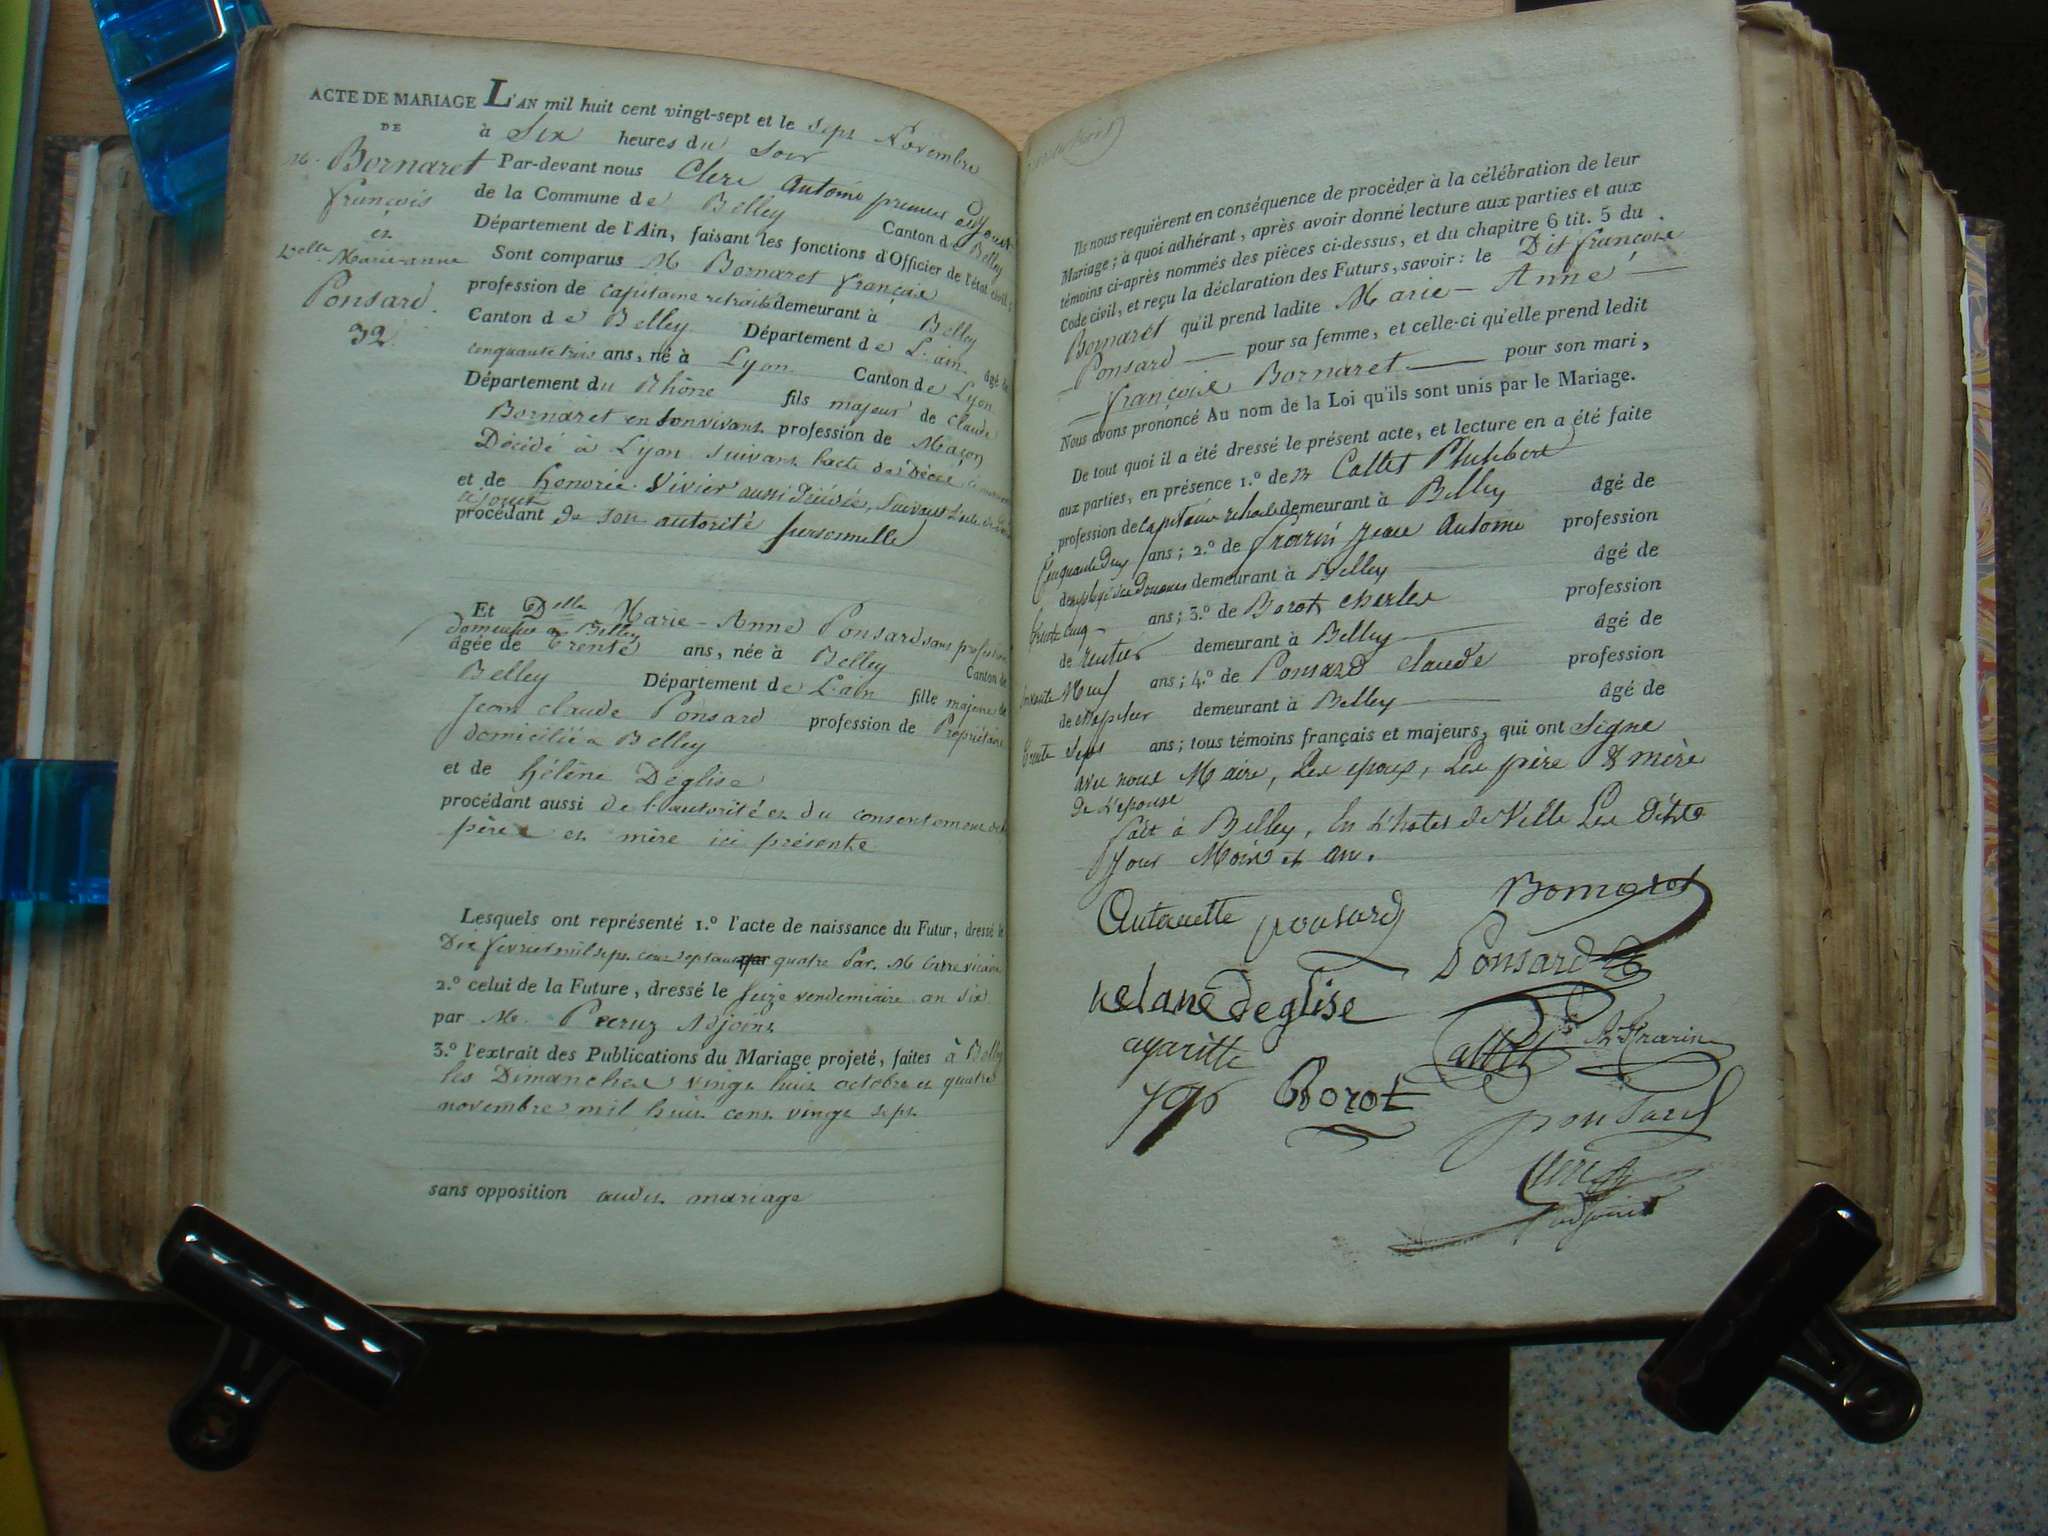 ACTE DE MARIAGE
DE
M. Bornaret
françois
et
Delle Marie-anne
Ponsard.
32.
L'AN mil huit cent vingt-sept et le sept Novembre
à Six heures du Soir
Par-devant nous Clerc Antoine premier adjoint
de la Commune de Belley Canton de Belley
Département de l'Ain, faisant les fonctions d'Officier de l'état civil;
Sont comparus M Bornaret françois
profession de capitaine retraité demeurant à Belley
Canton de Belley Département de L'ain âgé de
cinquante trois ans, né à Lyon Canton de Lyon
Département du Rhône fils majeur de Claude
Bornaret en Son vivant profession de Maçon
Décédé à Lyon Suivant l'acte de Décès
et de honorée Vivier aussi Décédée, Suivant l'acte de
procédant de son autorité personnelle
Et Delle Marie-Anne Ponsard sans profession
demeurant à Belley
âgée de trente ans, née à Belley Canton de
Belley Département de L'ain fille majeure de
Jean Claude Ponsard profession de Propriétaire
domicilié a Belley
et de hélène Deglise
procédant aussi de l'autorité et du consentement de
père et mère ici présents
Lesquels ont représenté 1.º l'acte de naissance du Futur, dressé le
Dix fevrier mil sept cent septante quatre Par M vicaire
2.º celui de la Future, dressé le Seize vendemiaire an six
par M. Peeruz Adjoint
3.º l'extrait des Publications du Mariage projeté, faites à Belley
les Dimanches vingt huit octobre et quatre
novembre mil huit cent vingt sept
sans opposition audit mariage
Ils nous requièrent en conséquence de procéder à la célébration de leur
Mariage; à quoi adhérant, après avoir donné lecture aux parties et aux
témoins ci-après nommés des pièces ci-dessus, et du chapitre 6 tit. 5 du
Code civil, et reçu la déclaration des Futurs, savoir: le Dit françois
Bornaret qu'il prend ladite Marie-Anne
Ponsard pour sa femme, et celle-ci qu'elle prend ledit
françois Bornaret pour son mari,
Nous avons prononcé Au nom de la Loi qu'ils sont unis par le Mariage.
De tout quoi il a été dressé le présent acte, et lecture en a été faite
aux parties, en présence 1.º de M Callet Philibert
profession de capitaine retraité demeurant à Belley âgé de
Cinquante Deux ans; 2.º de frarin Jean Antoine profession
d'employé des Douanes demeurant à Belley âgé de
trente cinq ans; 3.º de Borot Charles profession
de rentier demeurant à Belley âgé de
Neuf ans; 4.º de Ponsard Claude profession
de demeurant à Belley âgé de
trente Sept ans; tous témoins français et majeurs, qui ont Signé
avec nous Maire, Les epoux, Les père & mère
de L'epouse
fait à Belley, En L'hotel de Ville Les Dits
Jour Mois et an.
Bornaret
Antoinette ponsard
Ponsard
helane deglise
Callet
Frarin
Borot
ponsard
Clerc
adjoint